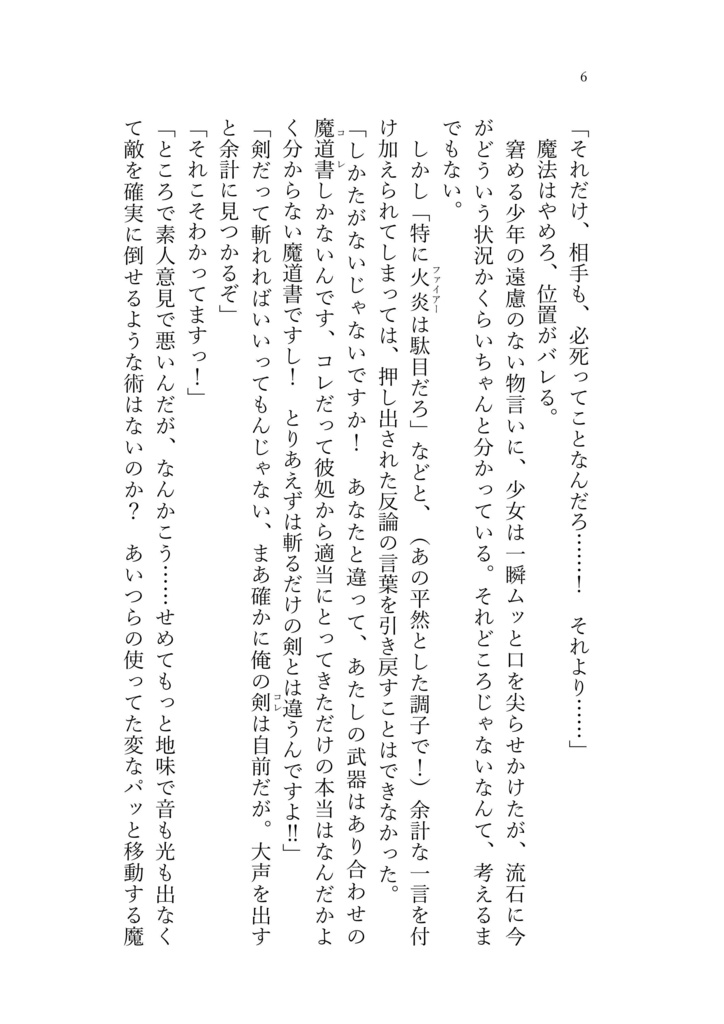 6
「それだけ、相手も、必死ってことなんだろ……！　それより……」
魔法はやめろ、位置がバレる。
窘める少年の遠慮のない物言いに、少女は一瞬ムッと口を尖らせかけたが、流石に今
がどういう状況かくらいちゃんと分かっている。それどころじゃないなんて、考えるま
でもない。
しかし「特に火炎は駄目だろ」などと、（あの平然とした調子で！）余計な一言を付
ファイアー
け加えられてしまっては、押し出された反論の言葉を引き戻すことはできなかった。
「しかたがないじゃないですか！　あなたと違って、あたしの武器はあり合わせの
魔道書しかないんです、コレだって彼処から適当にとってきただけの本当はなんだかよ
コレ
く分からない魔道書ですし！　とりあえずは斬るだけの剣とは違うんですよ!!」
「剣だって斬れればいいってもんじゃない、まあ確かに俺の剣は自前だが。大声を出す
コレ
と余計に見つかるぞ」
「それこそわかってますっ！」
「ところで素人意見で悪いんだが、なんかこう……せめてもっと地味で音も光も出なく
て敵を確実に倒せるような術はないのか？　あいつらの使ってた変なパッと移動する魔